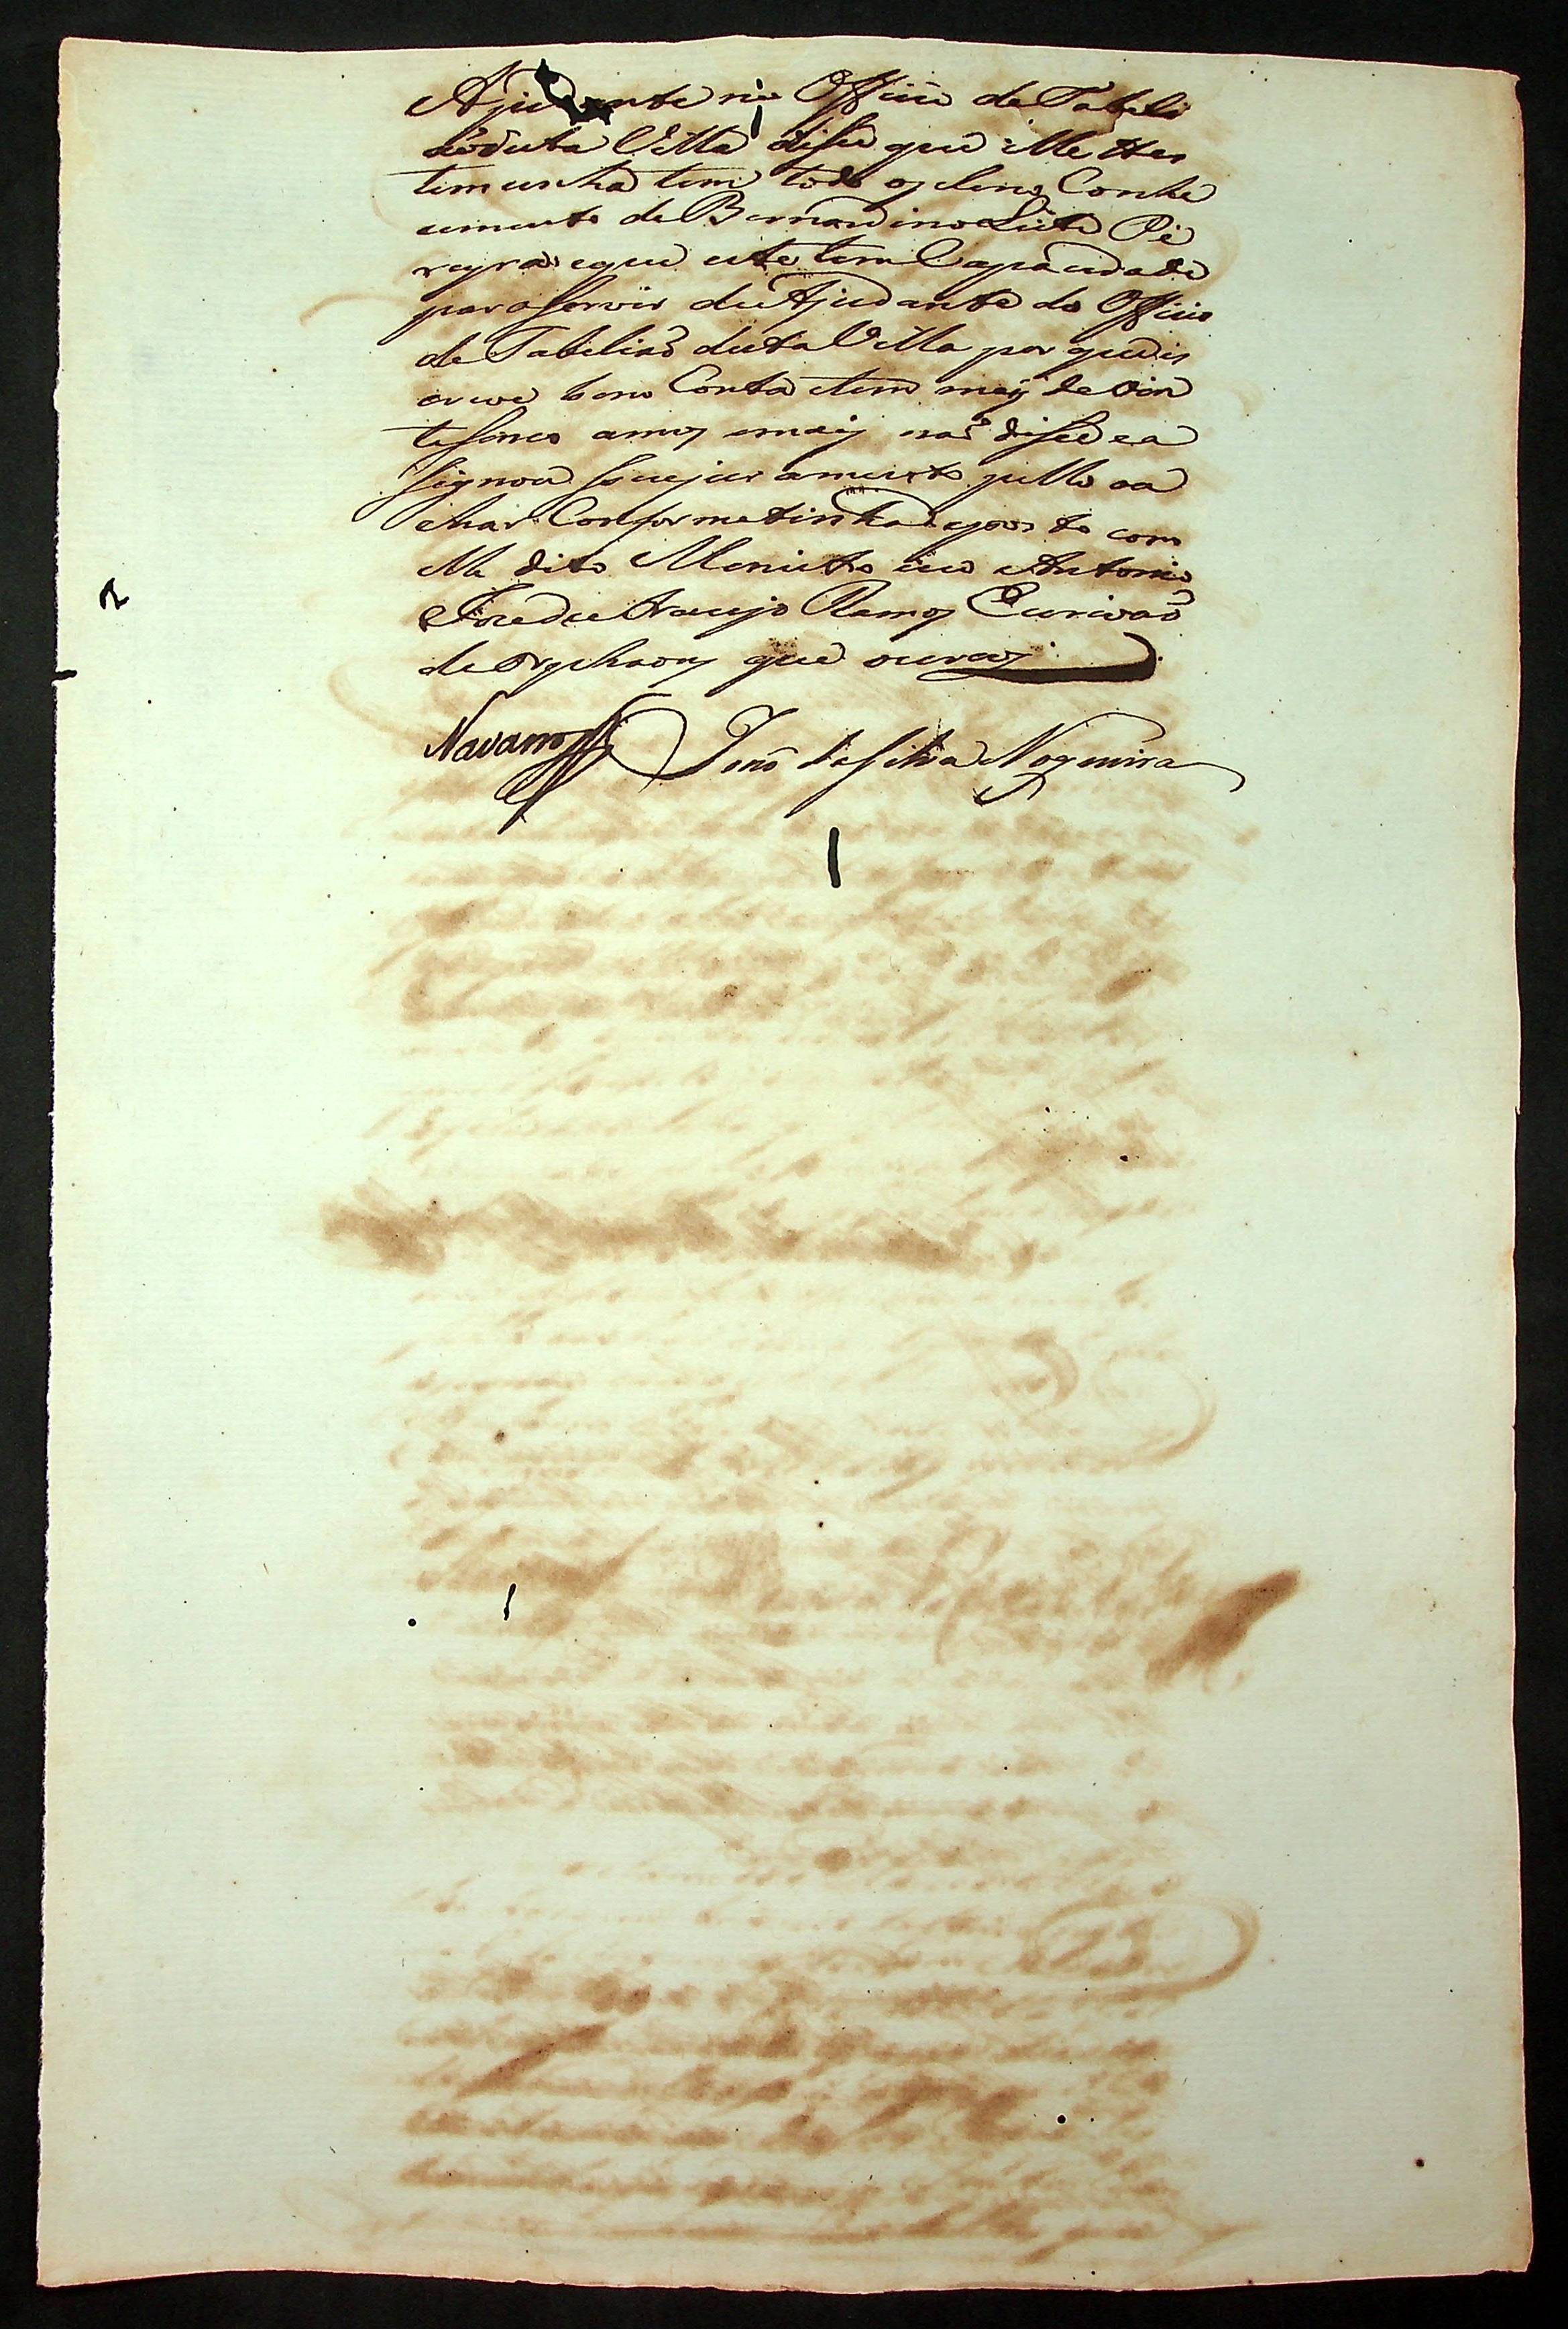 Ajudante no Officio de Tabeli
aõ desta Villa disse que elle tes
temunha tem todo opleno Conhe
cimento de Bernardino Leite Pe
reyra eque este tem Capacidade
para servir de Ajudante do Officio
de Tabeliaõ desta Villa por que es
creve bem Conta etem mais de vin
te sinco annos emais naõ disse ea
signou seu juramento pello aa
char Conforme tinha deposto com
elle dito Menistro eu Antonio
Joze de Araujo Ramos Escrivaõ
de Orphaons que escrevy
Navarro Joaõ da Silva Nogueira